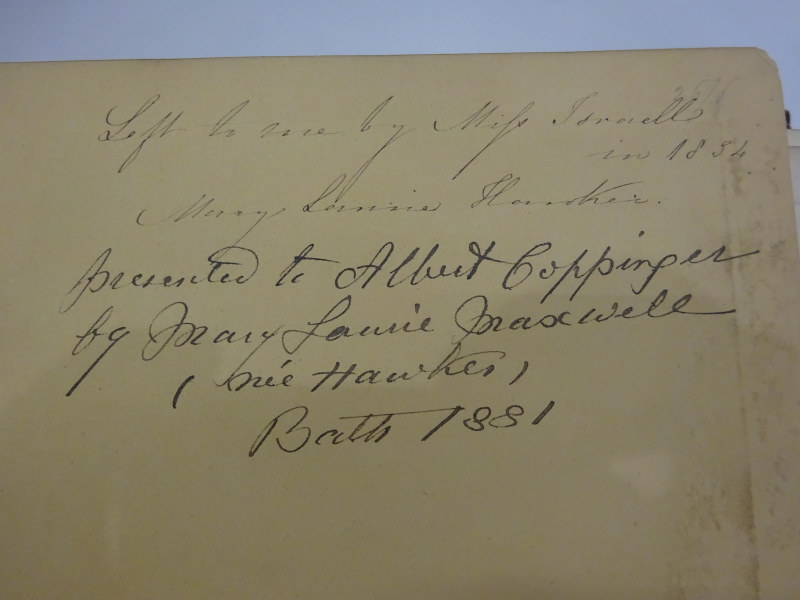 Left to me by Miss Israell
in 1834
Mary Laurie Hawker.
presented to Albert Coppinger
by Mary Laurie Maxwell
( née Hawker)
Bath 1881